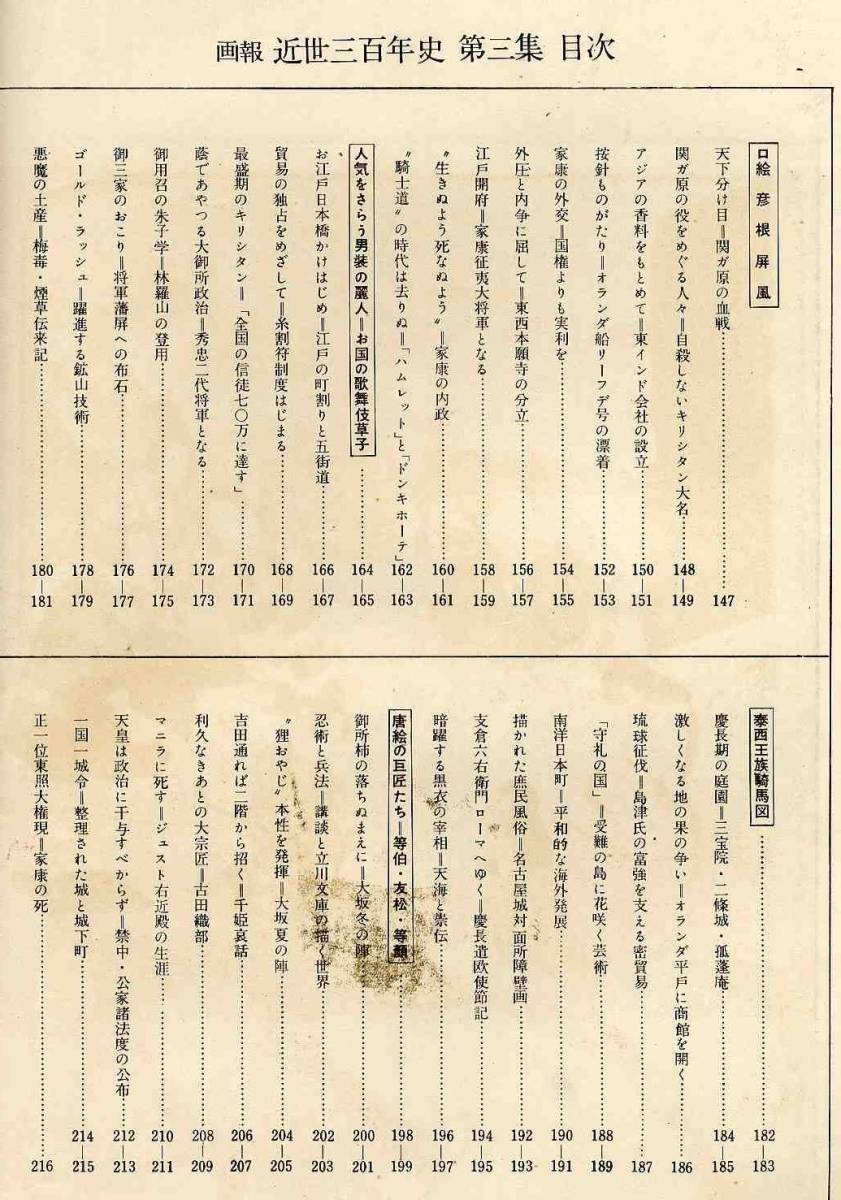 画報 近世三百年史 第三集 目次
口絵 彦根屏風
天下分け目‖関ガ原の血戦……147
関ガ原の役をめぐる人々‖自殺しないキリシタン大名……148―149
アジアの香料をもとめて‖東インド会社の設立……150―151
按針ものがたり‖オランダ船リーフデ号の漂着……152―153
家康の外交‖国権よりも実利を……154―155
外圧と内争に屈して‖東西本願寺の分立……156―157
江戸開府‖家康征夷大将軍となる……158―159
〝生きぬよう死なぬよう〟‖家康の内政……160―161
〝騎士道〟の時代は去りぬ‖「ハムレット」と「ドンキホーテ」……162―163
人気をさらう男装の麗人‖お国の歌舞伎草子……164―165
お江戸日本橋かけはじめ‖江戸の町割りと五街道……166―167
貿易の独占をめざして‖糸割符制度はじまる……168―169
最盛期のキリシタン‖「全国の信徒七〇万に達す」……170―171
蔭であやつる大御所政治‖秀忠二代将軍となる……172―173
御用召の朱子学‖林羅山の登用……174―175
御三家のおこり‖将軍藩屏への布石……176―177
ゴールド・ラッシュ‖躍進する鉱山技術……178―179
悪魔の土産‖梅毒・煙草伝来記……180―181
泰西王族騎馬図……182―183
慶長期の庭園‖三宝院・二條城・孤蓬庵……184―185
激しくなる地の果の争い‖オランダ平戸に商館を開く……186
琉球征伐‖島津氏の富強を支える密貿易……187
「守礼の国」‖受難の島に花咲く芸術……188―189
南洋日本町‖平和的な海外発展……190―191
描かれた庶民風俗‖名古屋城対面所障壁画……192―193
支倉六右衛門ローマへゆく‖慶長遣欧使節記……194―195
暗躍する黒衣の宰相‖天海と崇伝……196―197
唐絵の巨匠たち‖等伯・友松・等顔……198―199
御所柿の落ちぬまえに‖大坂冬の陣……200―201
忍術と兵法‖講談と立川文庫の描く世界……202―203
〝狸おやじ〟本性を発揮‖大坂夏の陣……204―205
吉田通れば二階から招く‖千姫哀話……206―207
利久なきあとの大宗匠‖古田織部……208―209
マニラに死す‖ジュスト右近殿の生涯……210―211
天皇は政治に干与すべからず‖禁中・公家諸法度の公布……212―213
一国一城令‖整理された城と城下町……214―215
正一位東照大権現‖家康の死……216